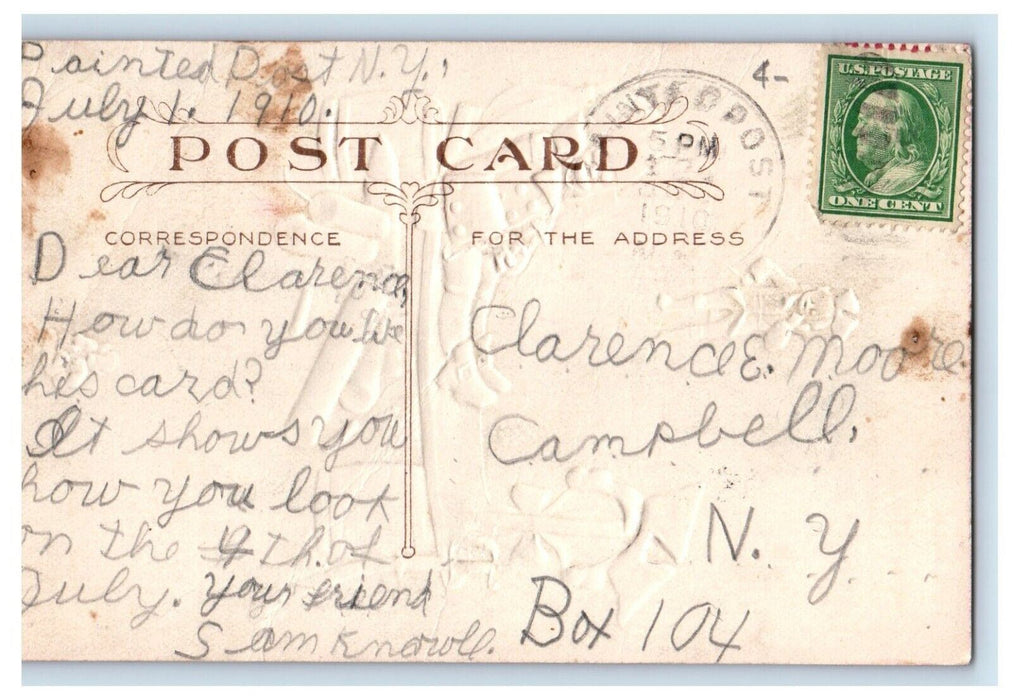 Painted Post N.Y.,
July 1. 1910.
POST CARD
CORRESPONDENCE
FOR THE ADDRESS
Dear Clarence,
How do you like
his card?
It shows you
how you look
on the 4th. of
July. Your friend
Sam Knowll.
Clarence E. Moore
Campbell.
N. Y
Box 104
4-
POST
5 PM
1910
U.S. POSTAGE
ONE CENT